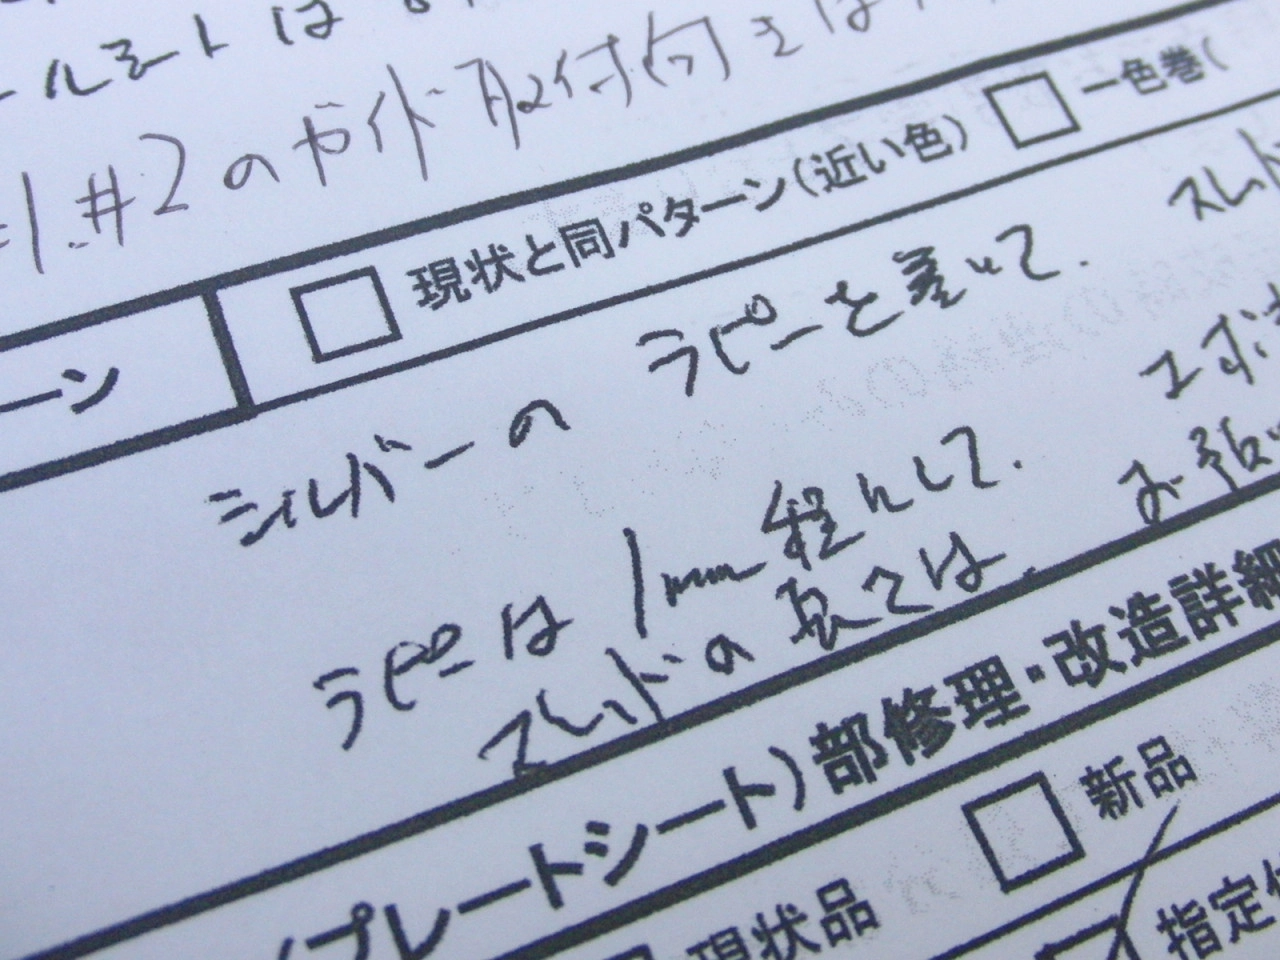 ールシートは
#1.#2のガイド取付向きは
□ 現状と同パターン(近い色) □ 一色巻(
ーン
シルバーの ラピーを巻いて. スレッド
ラピーは 1mm程にして.
スレッドの巻では. お預
(プレートシート)部修理・改造詳細
現状品 □ 新品
指定